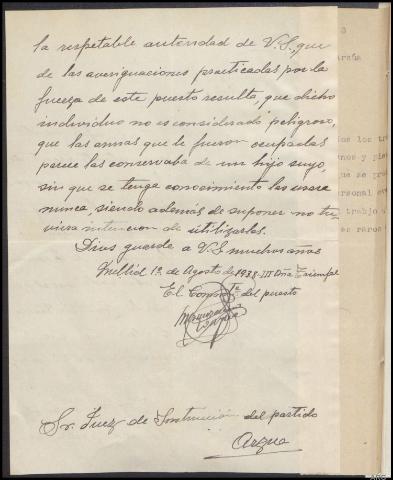 la respetable autoridad de V.S., que
de las averiguaciones practicadas por la
fuerza de este puesto resulta, que dicho
individuo no es considerado peligroso,
que las armas que le fueron ocupadas
parece las conservaba de un hijo suyo,
sin que se tenga conocimiento las usara
nunca, siendo además de suponer no tu
viera intención de utilizarlas.
Dios guarde a V.S. muchos años
Mellid 13 de Agosto de 1938 - III Año Triunfal
El Comte del puesto
Sr. Juez de Instrucción del partido
Arzua